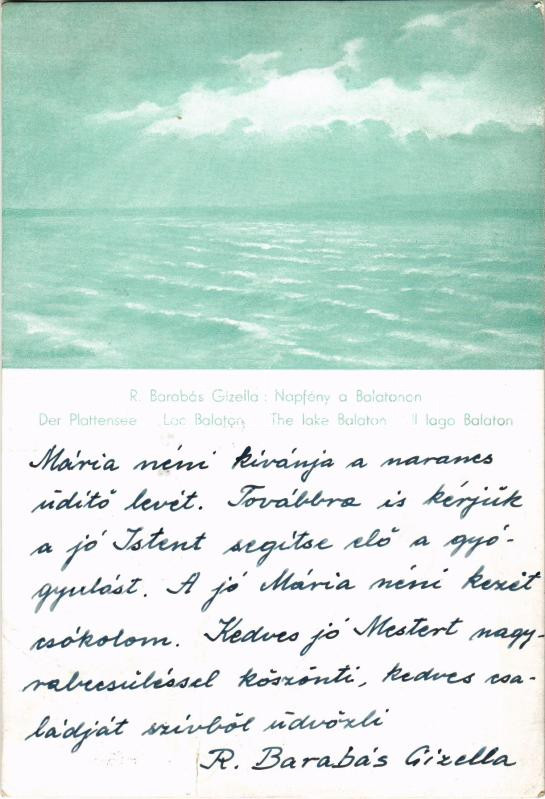 R. Barabás Gizella : Napfény a Balatonon
Der Plattensee Lac Balaton The lake Balaton Il lago Balaton
Mária néni kívánja a narancs
üdítő levét. Továbbra is kérjük
a jó Istent segítse elő a gyó-
gyulást. A jó Mária néni kezét
csókolom. Kedves jó Mestert nagy-
rabecsüléssel köszönti, kedves csa-
ládját szívből üdvözli
R. Barabás Gizella